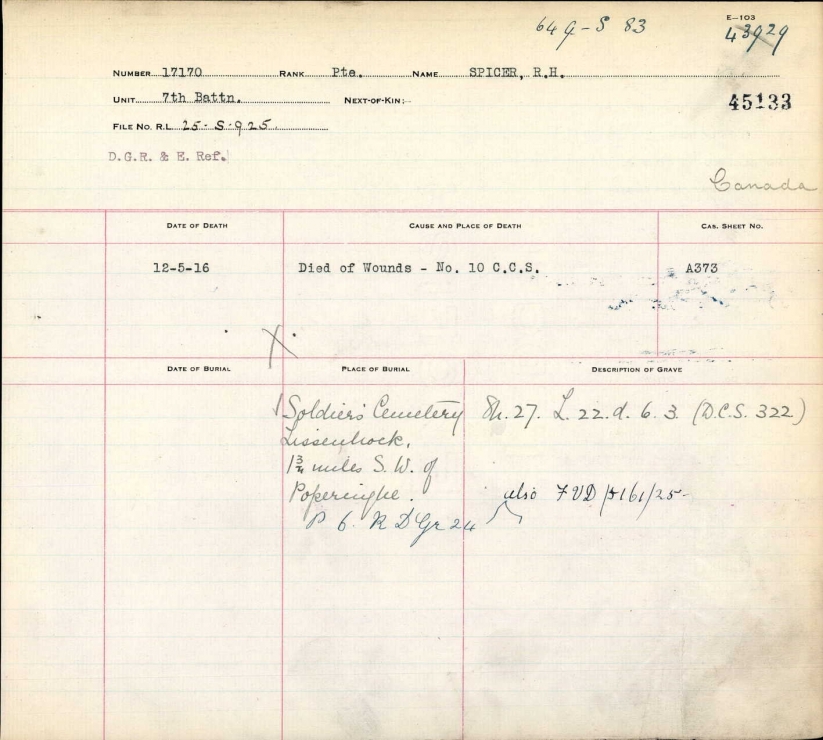 649-S 83
E-103
43929
NUMBER 17170 RANK Pte. NAME SPICER, R.H.
UNIT 7th Battn. NEXT-OF-KIN:-
45133
FILE NO. R.L. 25-S-925.
D.G.R. & E. Ref.
Canada
DATE OF DEATH CAUSE AND PLACE OF DEATH CAS. SHEET NO.
12-5-16 Died of Wounds - No. 10 C.C.S. A373
DATE OF BURIAL PLACE OF BURIAL DESCRIPTION OF GRAVE
Soldiers' Cemetery Sh. 27. L. 22. d. 6. 3. (D.C.S. 322)
Lissenhock,
1¾ miles S. W. of
Poperinghe. also 7 VD
P 6. R D Gr 24